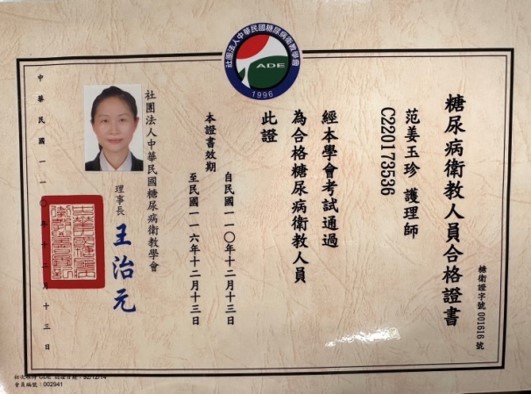 社團法人中華民國糖尿病衛教學會
ADE
1996
糖尿病衛教人員合格證書
糖衛證字號001616號
范姜玉珍 護理師
C220173536
經本學會考試通過
為合格糖尿病衛教人員
此證
本證書效期
自民國一一〇年十二月十三日
至民國一一六年十二月十三日
社團法人中華民國糖尿病衛教學會
理事長 王治元
中華民國一一〇年十二月十三日
會員編號：002941